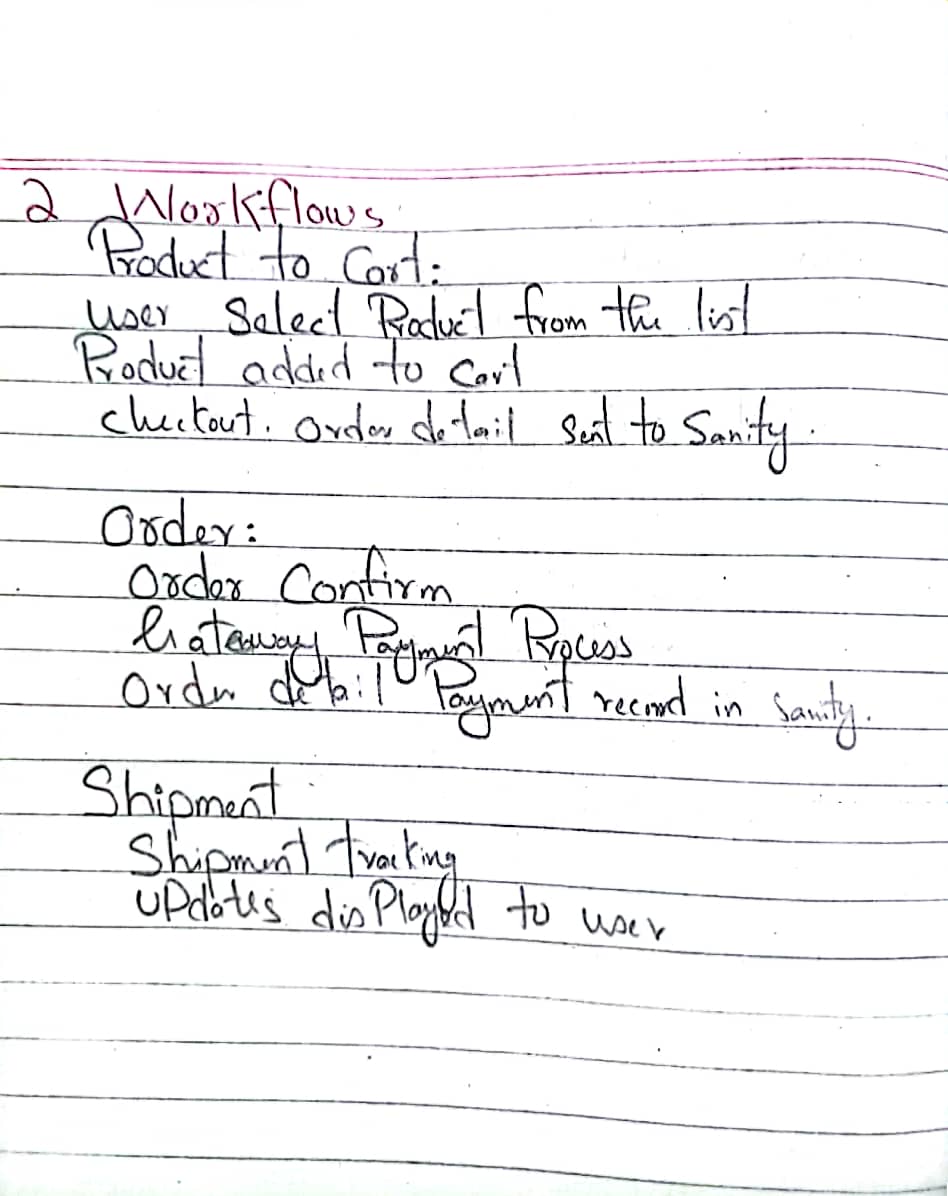 2 Workflows
Product to Cart:
user Select Product from the list
Product added to Cart
checkout. order detail sent to Sanity.
Order:
Order Confirm
Gateway Payment Process
Order detail Payment record in Sanity.
Shipment
Shipment tracking
updates displayed to user